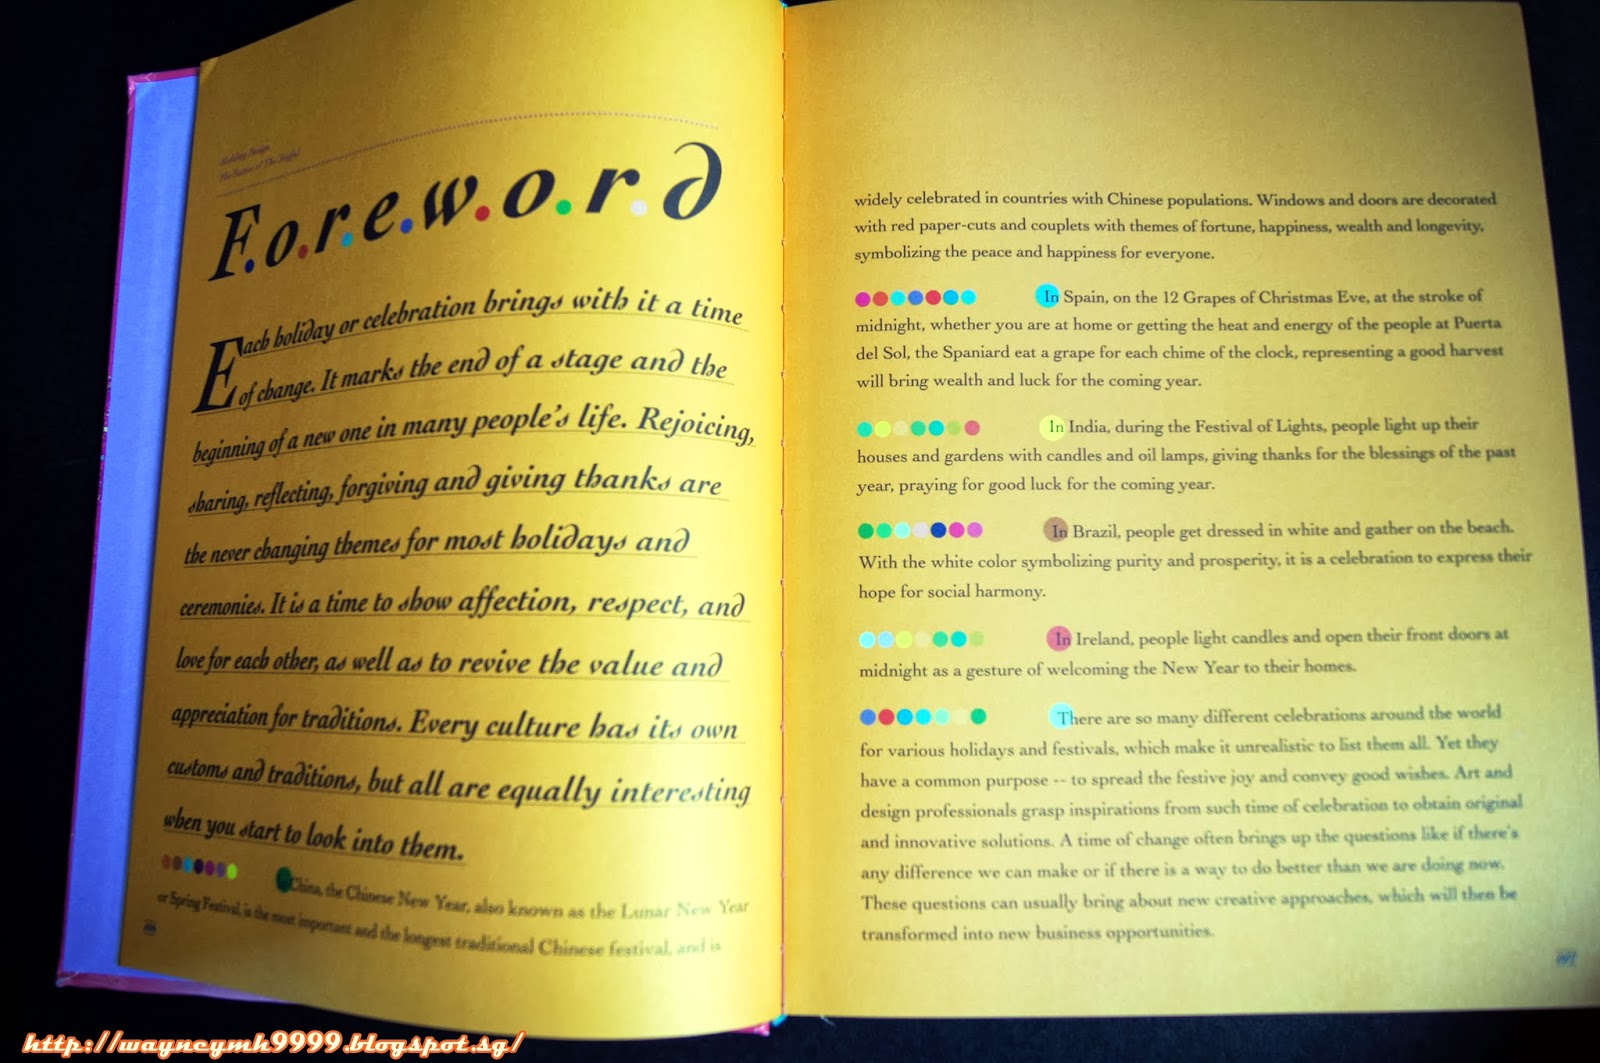 Holiday Design
The Festive & The Joyful
F.o.r.e.w.o.r.d
Each holiday or celebration brings with it a time
of change. It marks the end of a stage and the
beginning of a new one in many people's life. Rejoicing,
sharing, reflecting, forgiving and giving thanks are
the never changing themes for most holidays and
ceremonies. It is a time to show affection, respect, and
love for each other, as well as to revive the value and
appreciation for traditions. Every culture has its own
customs and traditions, but all are equally interesting
when you start to look into them.
In China, the Chinese New Year, also known as the Lunar New Year
or Spring Festival, is the most important and the longest traditional Chinese festival, and is
widely celebrated in countries with Chinese populations. Windows and doors are decorated
with red paper-cuts and couplets with themes of fortune, happiness, wealth and longevity,
symbolizing the peace and happiness for everyone.
In Spain, on the 12 Grapes of Christmas Eve, at the stroke of
midnight, whether you are at home or getting the heat and energy of the people at Puerta
del Sol, the Spaniard eat a grape for each chime of the clock, representing a good harvest
will bring wealth and luck for the coming year.
In India, during the Festival of Lights, people light up their
houses and gardens with candles and oil lamps, giving thanks for the blessings of the past
year, praying for good luck for the coming year.
In Brazil, people get dressed in white and gather on the beach.
With the white color symbolizing purity and prosperity, it is a celebration to express their
hope for social harmony.
In Ireland, people light candles and open their front doors at
midnight as a gesture of welcoming the New Year to their homes.
There are so many different celebrations around the world
for various holidays and festivals, which make it unrealistic to list them all. Yet they
have a common purpose -- to spread the festive joy and convey good wishes. Art and
design professionals grasp inspirations from such time of celebration to obtain original
and innovative solutions. A time of change often brings up the questions like if there's
any difference we can make or if there is a way to do better than we are doing now.
These questions can usually bring about new creative approaches, which will then be
transformed into new business opportunities.
http://wayneymh9999.blogspot.sg/